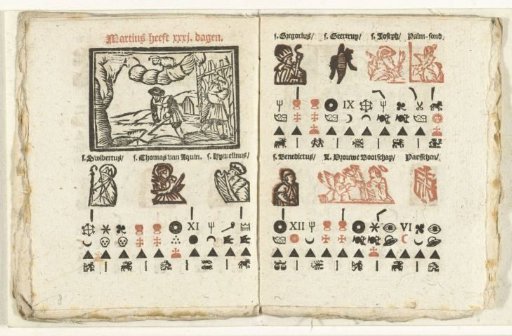 Martius heeft xxxj. dagen.
s. Swibertus/ s. Thomas van Aquin.
XI
s. Gregorius/ s. Geertruy/ s. Joseph/ Palm-sond.
IX
s. Benedictus/ L. Vrouwe Bootschap/ Paesschen/
XII VI